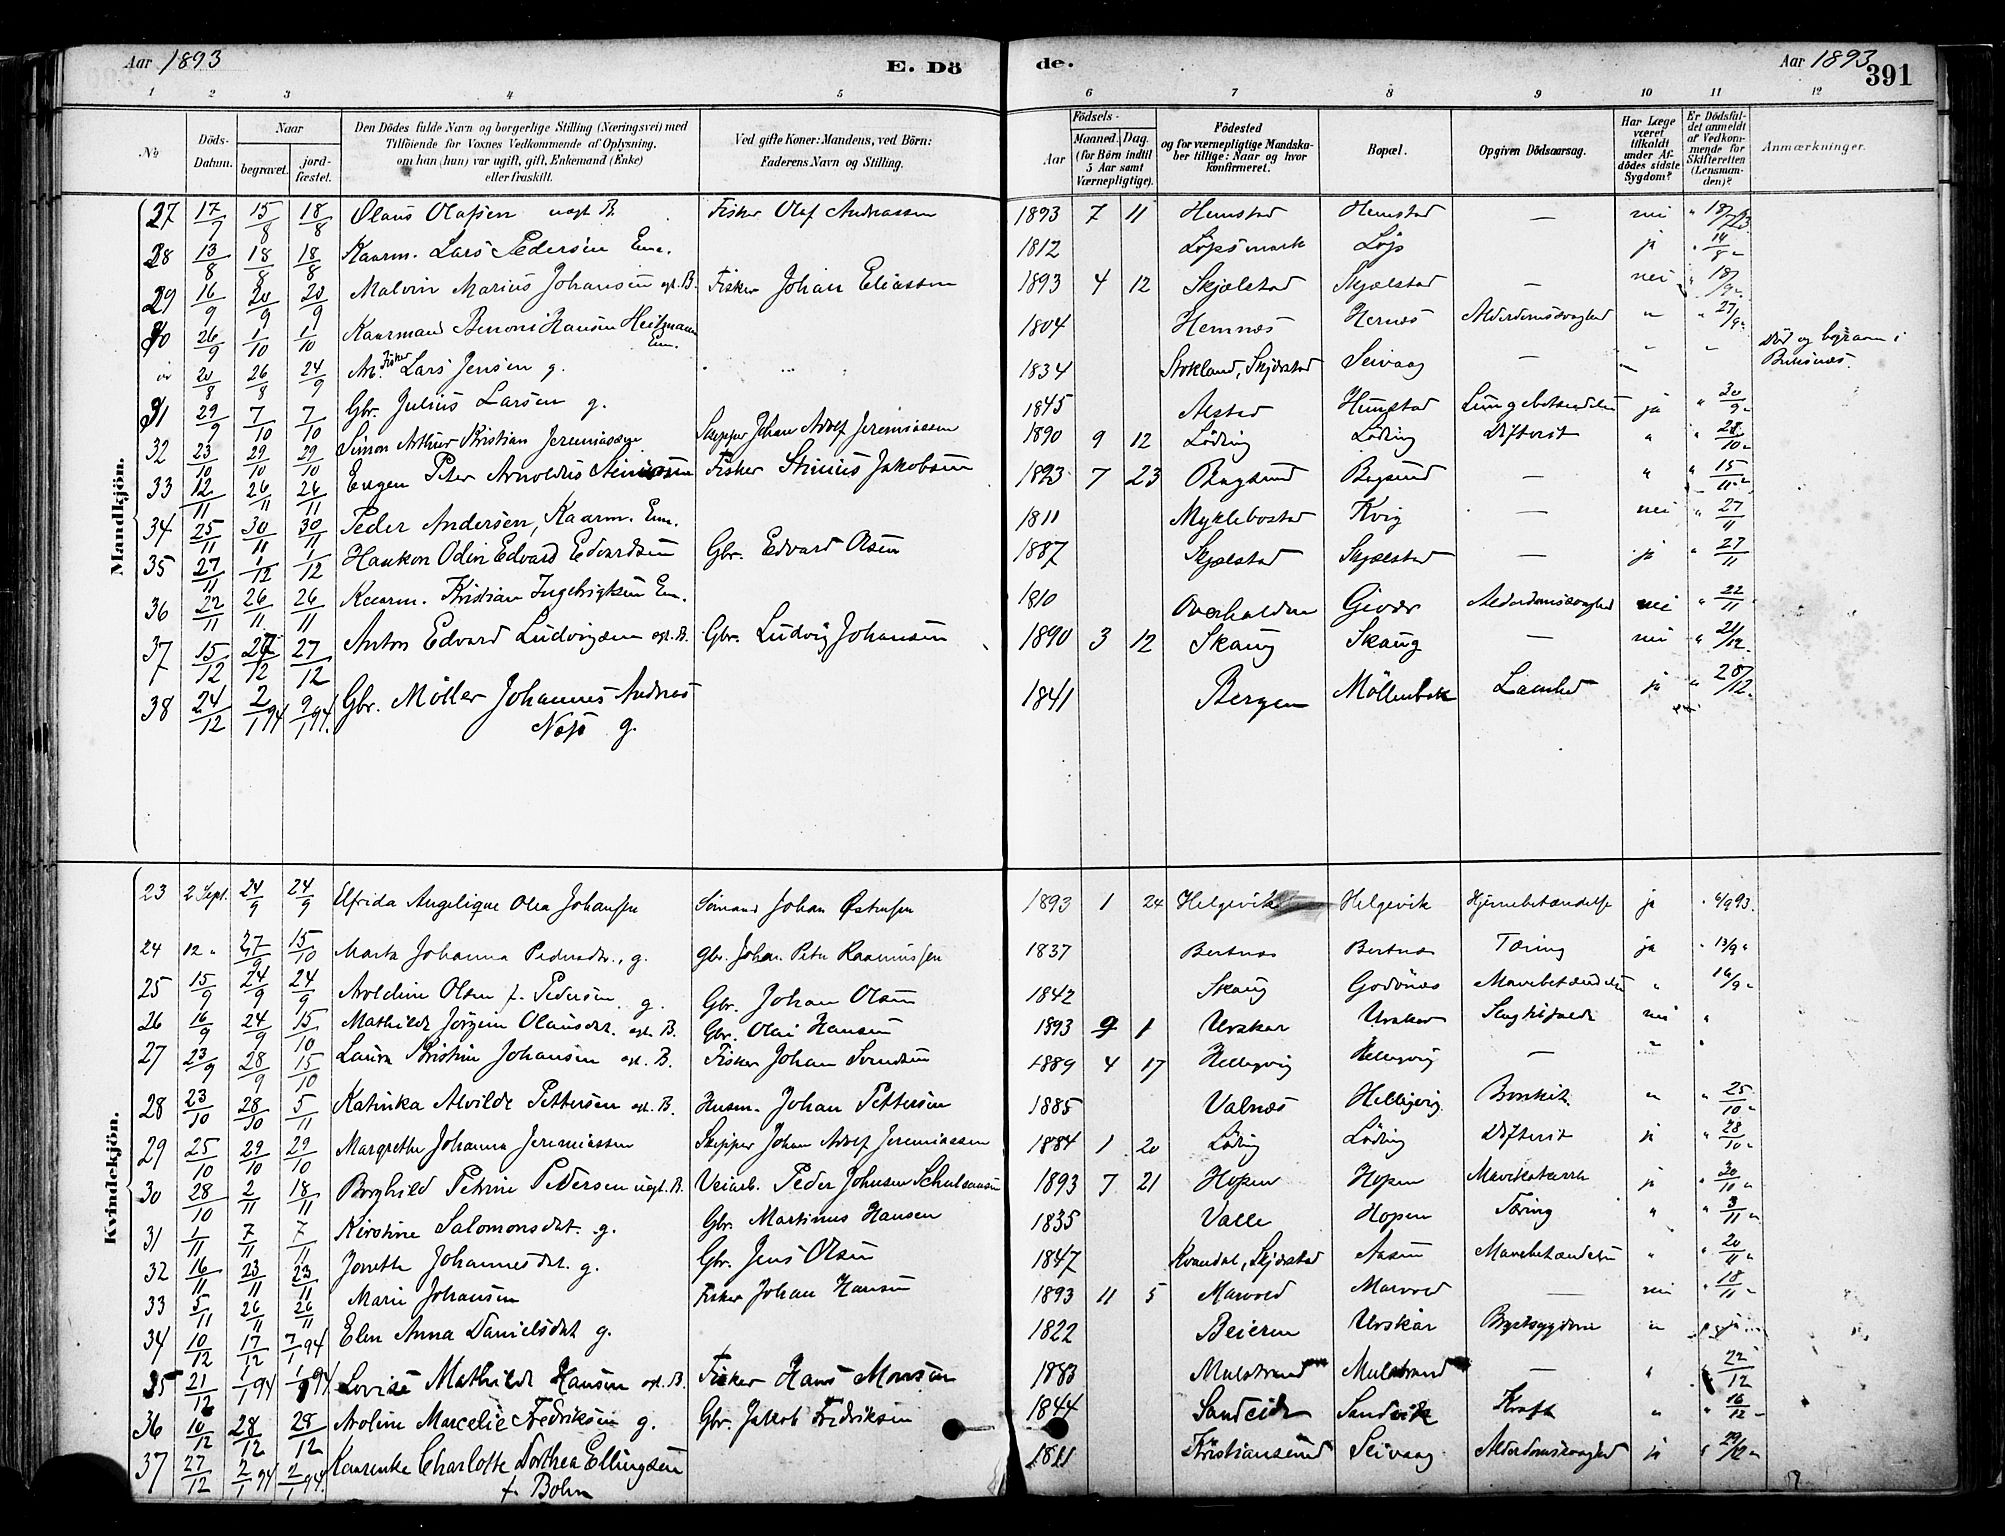 Aar 1893 E. Dö de. Aar 1893 391
1 2 3 4 5 6 7 8 9 10 11 12
№ Döds-Datum. Naar begravet. jord-fæstet. Den Dödes fulde Navn og borgerlige Stilling (Næringsvei) med Tilföiende for Voxnes Vedkommende af Oplysning, om han (hun) var ugift, gift, Enkemand (Enke) eller fraskilt. Ved gifte Koner: Mandens, ved Börn: Faderens Navn og Stilling. Födsels- Aar Maaned. Dag. (for Börn indtil 5 Aar samt Værnepligtige). Födested og for værnepligtige Mandskaber tillige: Naar og hvor konfirmeret. Bopæl. Opgiven Dödsaarsag. Har Læge været tilkaldt under Afdödes sidste Sygdom? Er Dödsfaldet anmeldt af Vedkommende for Skifteretten (Lensmanden)? Anmærkninger.
Mandkjön.
27 17/7 15/8 18/8 Olaus Olafsen uægt B. Fisker Olaf Andreassen 1893 7 11 Hemstad Hemstad — nei " 18/7 93
28 13/8 18/8 18/8 Kaarm. Lars Pedersen Em. 1812 Löpsmark Löp ja " 14/8 "
29 16/9 20/9 20/9 Malvin Marius Johansen egt. B. Fisker Johan Eliassen 1893 4 12 Skjælstad Skjælstad — nei " 18/9 "
30 26/9 1/10 1/10 Kaarmand Benoni Hansen Heitmann Em. 1804 Hemnæs Hernæs Alderdomssvaghed " " 27/9 "
20/8 26/8 24/9 Arb. Fisker Lars Jensen g. 1834 Stokland, Skjerstad Seivaag — " " Död og begraven i
31 29/9 7/10 7/10 Gbr. Julius Larsen g. 1845 Alstad Hunstad Lungebetændelse ja " 30/9 "
32 23/10 29/10 29/10 Simon Arthur Kristian Jeremiassen Skipper Johan Adolf Jeremiassen 1890 9 12 Löding Löding Difterit " " 28/10 "
33 12/11 26/11 26/11 Eugen Peter Arnoldus Stinussen Fisker Stinius Jakobsen 1893 7 23 Bogsund Bogsund — " " 15/11 "
34 25/11 30/11 30/11 Peder Andersen, Kaarm. Em. 1811 Myklebostad Kvig — nei " 27/11
35 27/11 1/12 1/12 Haakon Odin Edvard Edvardsen Gbr. Edvard Olsen 1887 Skjælstad Skjælstad — ja " 27/11
36 22/11 26/11 26/11 Kaarm. Kristian Ingebrigtsen Em. 1810 Overhalden Givær Alderdomssvaghed nei " 22/11
37 15/12 27/12 27/12 Anton Edvard Ludvigsen egt. B. Gbr. Ludvig Johansen 1890 3 12 Skaug Skaug — nei " 21/12
38 24/12 2/1 94 9/1 94. Gbr. Möller Johannes Andreas 1841 Bergen Möllenbek Lamhed ja " 28/12
g.
Kvindekjön.
23 2 Sept. 24/9 24/9 Elfrida Angelique Olea Johansen Sömand Johan Östensen 1893 1 24 Helgevik Helgevik Hjernebetændelse ja " 6/9 93.
24 12 " 27/9 15/10 Marta Johanna Pedersdtr., g. Gbr. Johan Peter Rasmussen 1837 Bertnæs Bertnæs Tæring ja " 13/9 "
25 15/9 24/9 24/9 Aroldine Olsen f. Pedersen g. Gbr. Johan Olsen 1842 Skaug Godönæs Mavebetændelse " 16/9 "
26 16/9 24/9 15/10 Mathilde Jörgine Olausdat. egt. B. Gbr. Olai Hansen 1893 9 1 Urskar Urskar nei "
27 23/9 28/9 15/10 Laura Kristine Johansen egt. B. Fisker Johan Svendsen 1889 4 17 Hellegvig Hellegvig — " "
28 23/10 28/10 5/11 Katinka Alvilde Pettersen egt. B. Husm. Johan Pettersen 1885 Valnæs Helligvig Bronkit. " " 25/10 "
29 25/10 29/10 29/10 Margrethe Johanna Jeremiassen Skipper Johan Adolf Jeremiassen 1884 1 20 Löding Löding Difterit ja " 28/10 "
30 28/10 2/11 18/11 Borghild Petrine Pedersen uægt. B. Veiarb. Peder Johnsen 1893 7 21 Hopen Hopen Mavekatarrh ja " 30/10 "
31 1/11 7/11 7/11 Kirstine Salomonsdat. g. Gbr. Martinus Hansen 1835 Valle Hopen Tæring " " 3/11 "
32 16/11 23/11 23/11 Jonette Johannesdat. g. Gbr. Jens Olsen 1847 Kvændal, Skjerstad Aasen Mavebetændelse " " 20/11 "
33 5/11 26/11 26/11 Marie Johansen Fisker Johan Hansen 1893 11 5 Marvold Marvold — nei " 18/11 "
34 10/12 17/12 7/1 94 Elen Anna Danielsdat g. 1822 Beieren Urskar Brystsygdom "
35 21/12 1/1 94 1/1 94 Lovise Mathilde Hansen egt. B. Fisker Hans Monsen 1883 Mulstrand Mulstrand — " 22/12
36 10/12 28/12 28/12 Aroline Marcelie Fredriksen g. Gbr. Jakob Fredriksen 1844 Sandeide Sandvik Kræft " " 16/12 "
37 27/12 2/1 94 2/1 94. Kaarenke Charlotte Dorthea Ellingsen 1811 Kristiansund Seivaag Alderdomssvaghed ja " 29/12 "
f. Bohn